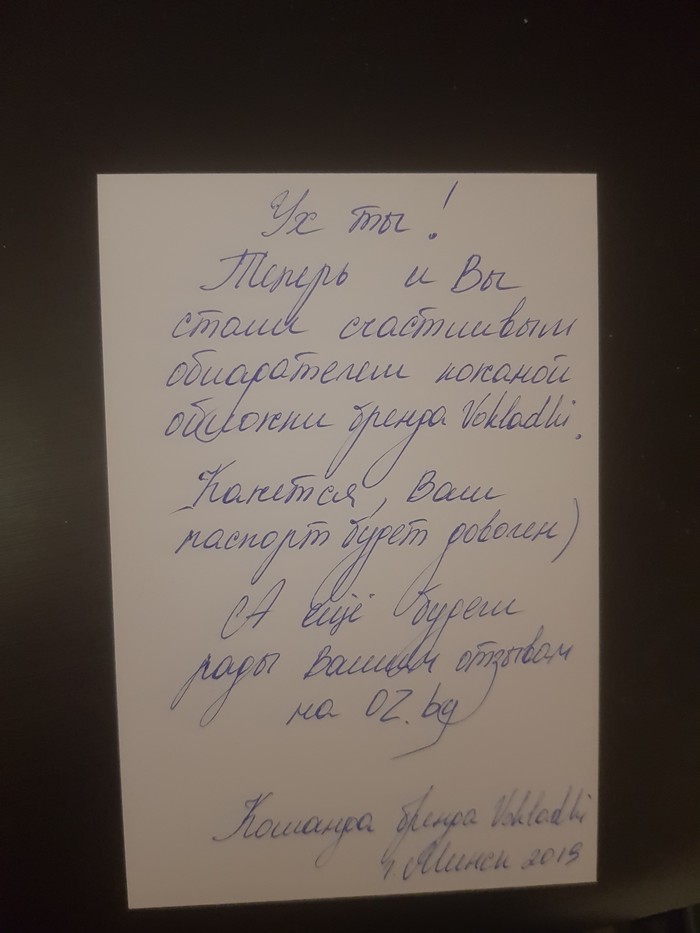 Ух ты!
Теперь и Вы
стали счастливым
обладателем кожаной
обложки бренда Vokladki.
Кажется, Ваш
паспорт будет доволен)
А ещё будем
рады Вашим отзывам
на OZ.by
Команда бренда Vokladki
г. Минск 2019